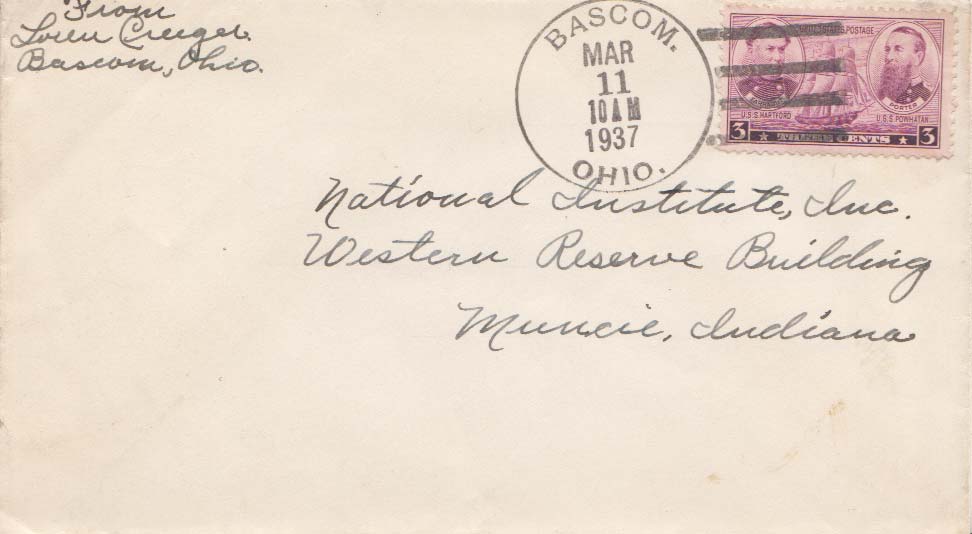 From
Loren Creeger.
Bascom, Ohio.
BASCOM.
MAR
11
10 AM
1937
OHIO.
UNITED STATES POSTAGE
FARRAGUT
PORTER
U.S.S. HARTFORD
U.S.S. POWHATAN
3 THREE CENTS 3
National Institute, Inc.
Western Reserve Building
Muncie, Indiana